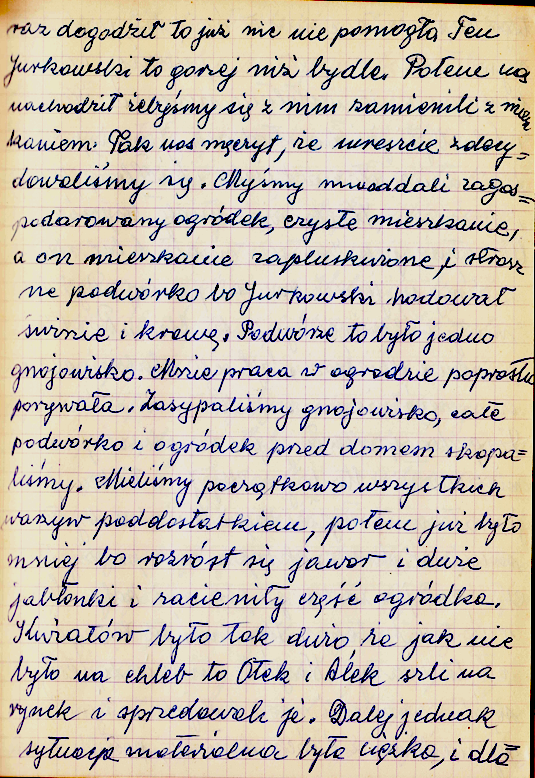 raz dogodził to już nic nie pomogła Ten
Jurkowski to gorzej niż bydle. Potem nas
nachodził żebyśmy się z nim zamienili z miesz
kaniem. Tak nas męczył, że wreszcie zdecy=
dowaliśmy się. Myśmy mu oddali zagos=
podarowany ogródek, czyste mieszkanie,
a on mieszkanie zapluskwione, i strasz
ne podwórko bo Jurkowski hodował
świnie i krowę. Podwórze to było jedno
gnojowisko. Mnie praca w ogrodzie poprostu
porywała. Zasypaliśmy gnojowisko, całe
podwórko i ogródek przed domem skopa=
liśmy. Mieliśmy początkowo wszystkich
warzyw poddostatkiem, potem już było
mniej bo rozrósł się jawor i duże
jabłonki i zacieniły część ogródka.
Kwiatów było tak dużo że jak nie
było na chleb to Olek i Alek szli na
rynek i sprzedawali je. Dalej jednak
sytuacja materialna była ciężka, i dla